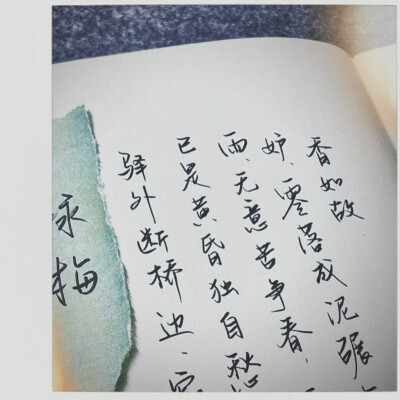 咏梅
驿外断桥边、
已是黄昏独自愁
雨、无意苦争春,
妒、零落成泥碾
香如故